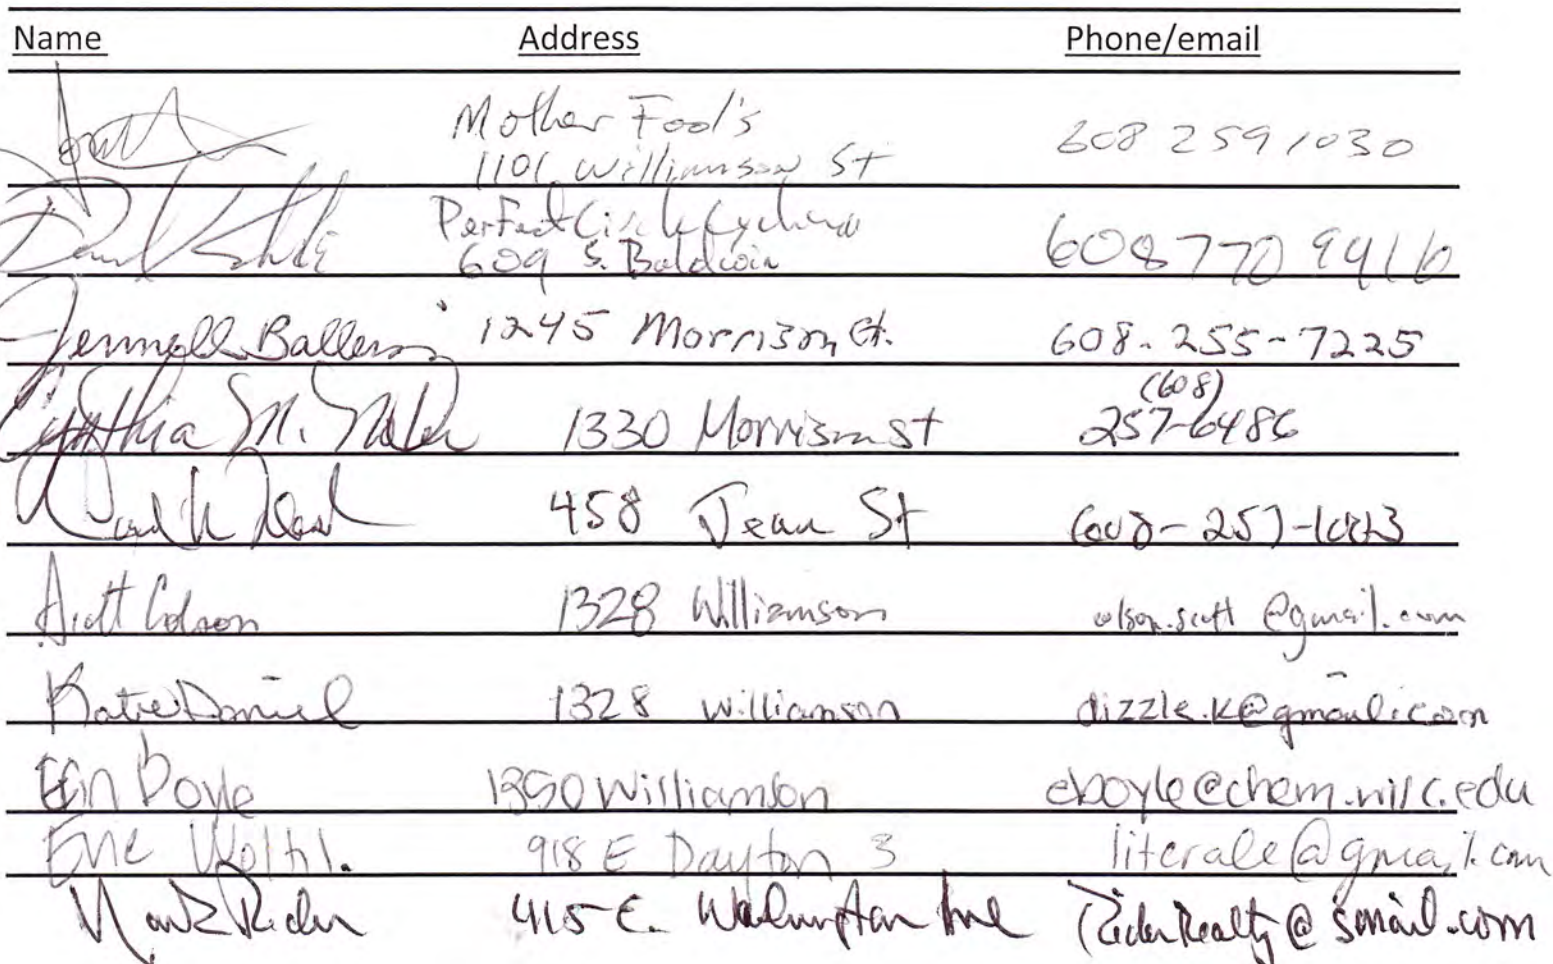 Name Address Phone/email
Mother Fool's 608 259 1030
1101 Williamson St
Perfect Circle Cycling
609 S. Baldwin 608 770 9416
1245 Morrison St. 608-255-7225
Cynthia M. 1330 Morrison st (608) 257-6486
458 Jean St 608-257-
Scott 1328 Williamson olson.scott@gmail.com
Katie Daniel 1328 Williamson dizzle.k@gmail.com
Erin Boyle Williamson eboyle@chem.wisc.edu
Eric 918 E Dayton 3 literale@gmail.com
Mark Rider 415 E. Washington Ave RiderRealty@gmail.com